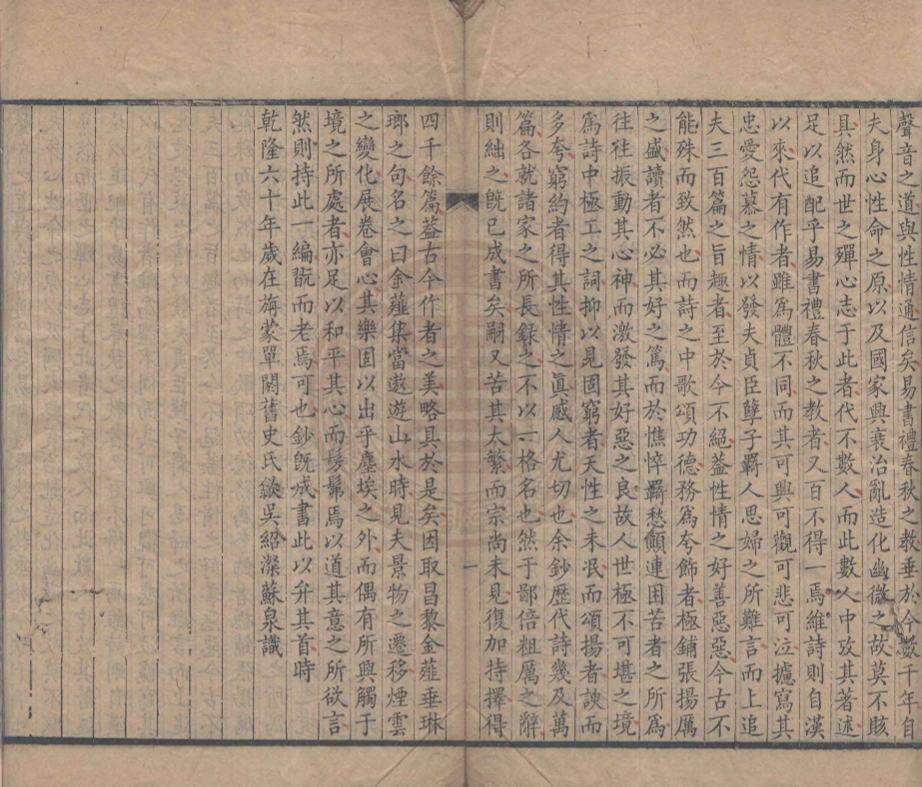 聲音之道與性情通信矣易書禮春秋之教垂於今數千年自
夫身心性命之原以及國家興衰治亂造化幽微之故莫不賅
具然而世之殫心志于此者代不數人而此數人中攷其著述
足以追配乎易書禮春秋之教者又百不得一焉維詩則自漢
以來代有作者雖爲體不同而其可興可觀可悲可泣攄寫其
忠愛怨慕之情以發夫貞臣孽子羇人思婦之所難言而上追
夫三百篇之旨趣者至於今不絕葢性情之好善惡惡今古不
能殊而致然也而詩之中歌頌功德務爲夸飾者極鋪張揚厲
之盛讀者不必其好之篤而於憔悴羇愁顛連困苦者之所爲
往往振動其心神而激發其好惡之良故人世極不可堪之境
爲詩中極工之詞抑以見固窮者天性之未泯而頌揚者諛而
多夸窮約者得其性情之眞感人尤切也余鈔歷代詩幾及萬
篇各就諸家之所長録之不以一格名也然于鄙倍粗厲之辭
則絀之旣已成書矣嗣又苦其太繁而宗尚未見復加持擇得
四千餘篇葢古今作者之美略具於是矣因取昌黎金薤垂琳
瑯之句名之曰金薤集當遨遊山水時見夫景物之遷移煙雲
之變化展卷會心其樂固以出乎塵埃之外而偶有所興觸于
境之所處者亦足以和平其心而髣髴焉以道其意之所欲言
然則持此一編翫而老焉可也鈔旣成書此以弁其首時
乾隆六十年歲在旃蒙單閼舊史氏歙吳紹澯蘇泉識